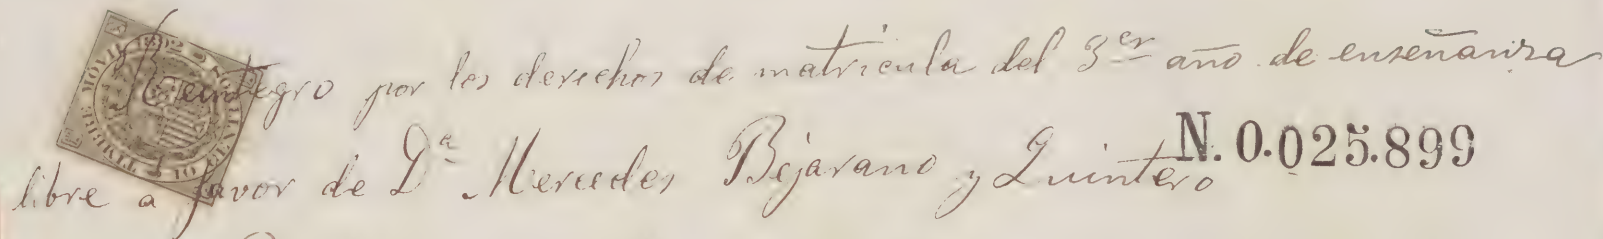 Reintegro por los derechos de matricula del 3er año de enseñanza
N. 0.025.899
libre a favor de Da Mercedes Bejarano y Quintero
TIMBRE MÓVIL 1892